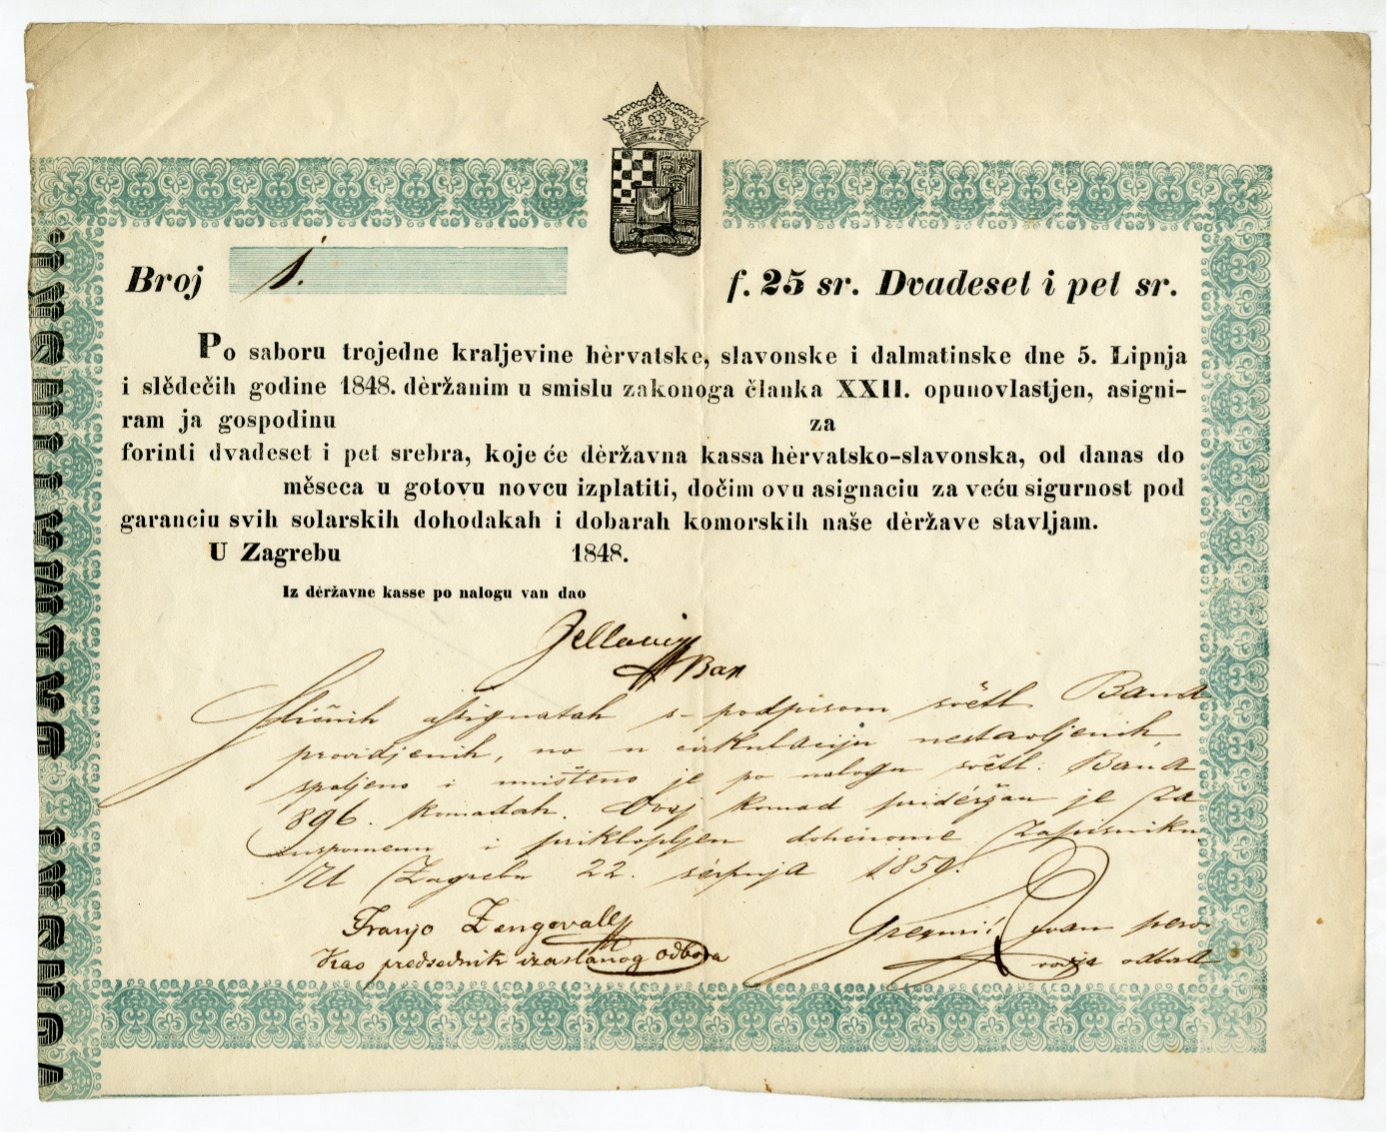 Broj 1.
f. 25 sr. Dvadeset i pet sr.
Po saboru trojedne kraljevine hèrvatske, slavonske i dalmatinske dne 5. Lipnja
i slědečih godine 1848. dèržanim u smislu zakonoga članka XXII. opunovlastjen, asigni-
ram ja gospodinu za
forinti dvadeset i pet srebra, koje će dèržavna kassa hèrvatsko-slavonska, od danas do
měseca u gotovu novcu izplatiti, dočim ovu asignaciu za veću sigurnost pod
garanciu svih solarskih dohodakah i dobarah komorskih naše dèržave stavljam.
U Zagrebu 1848.
Iz dèržavne kasse po nalogu van dao
Jellacic
Ban
Sličnih assignatah s podpisom světl. Bana
providjenih, no u cirkulaciju nestavljenih,
spaljeno i uništeno je po nalogu světl. Bana
896. komadah. Ovaj komad pridéržan je za
uspomenu i priklopljen dotičnome zapisniku
U Zagrebu 22. sérpnja 1850.
Franjo Žengevall
Ivan
kao predsednik izaslanog odbora
odbora